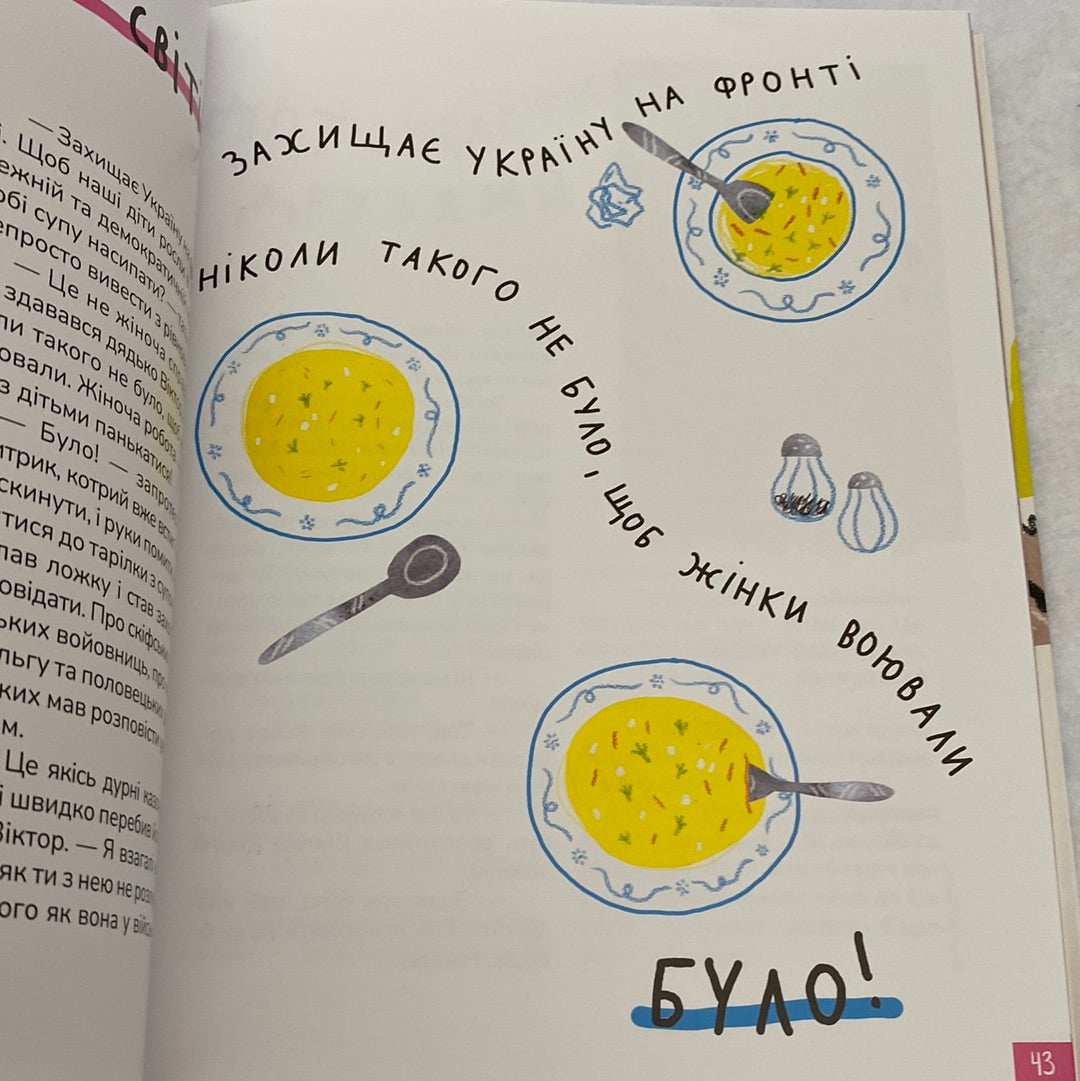 СВІТІ
— Захищає Україну на
і. Щоб наші діти росли в
ежній та демократичній
обі супу насипати? — Та
епросто вивести з рівнов
— Це не жіноча спра
здавався дядько Віктор
ли такого не було, щоб
ювали. Жіноча робота
з дітьми панькатися!
— Було! — запроте
итрик, котрий вже встиг
скинути, і руки помити
тися до тарілки з супо
лав ложку і став за
овідати. Про скіфськ
ських войовниць, про
льгу та половецьких
ких мав розповісти
м.
Це якісь дурні каз
і швидко перебив й
Віктор. — Я взагалі
як ти з нею не розл
ого як вона у війсь
ЗАХИЩАЄ УКРАЇНУ НА ФРОНТІ
НІКОЛИ ТАКОГО НЕ БУЛО, ЩОБ ЖІНКИ ВОЮВАЛИ
БУЛО!
43